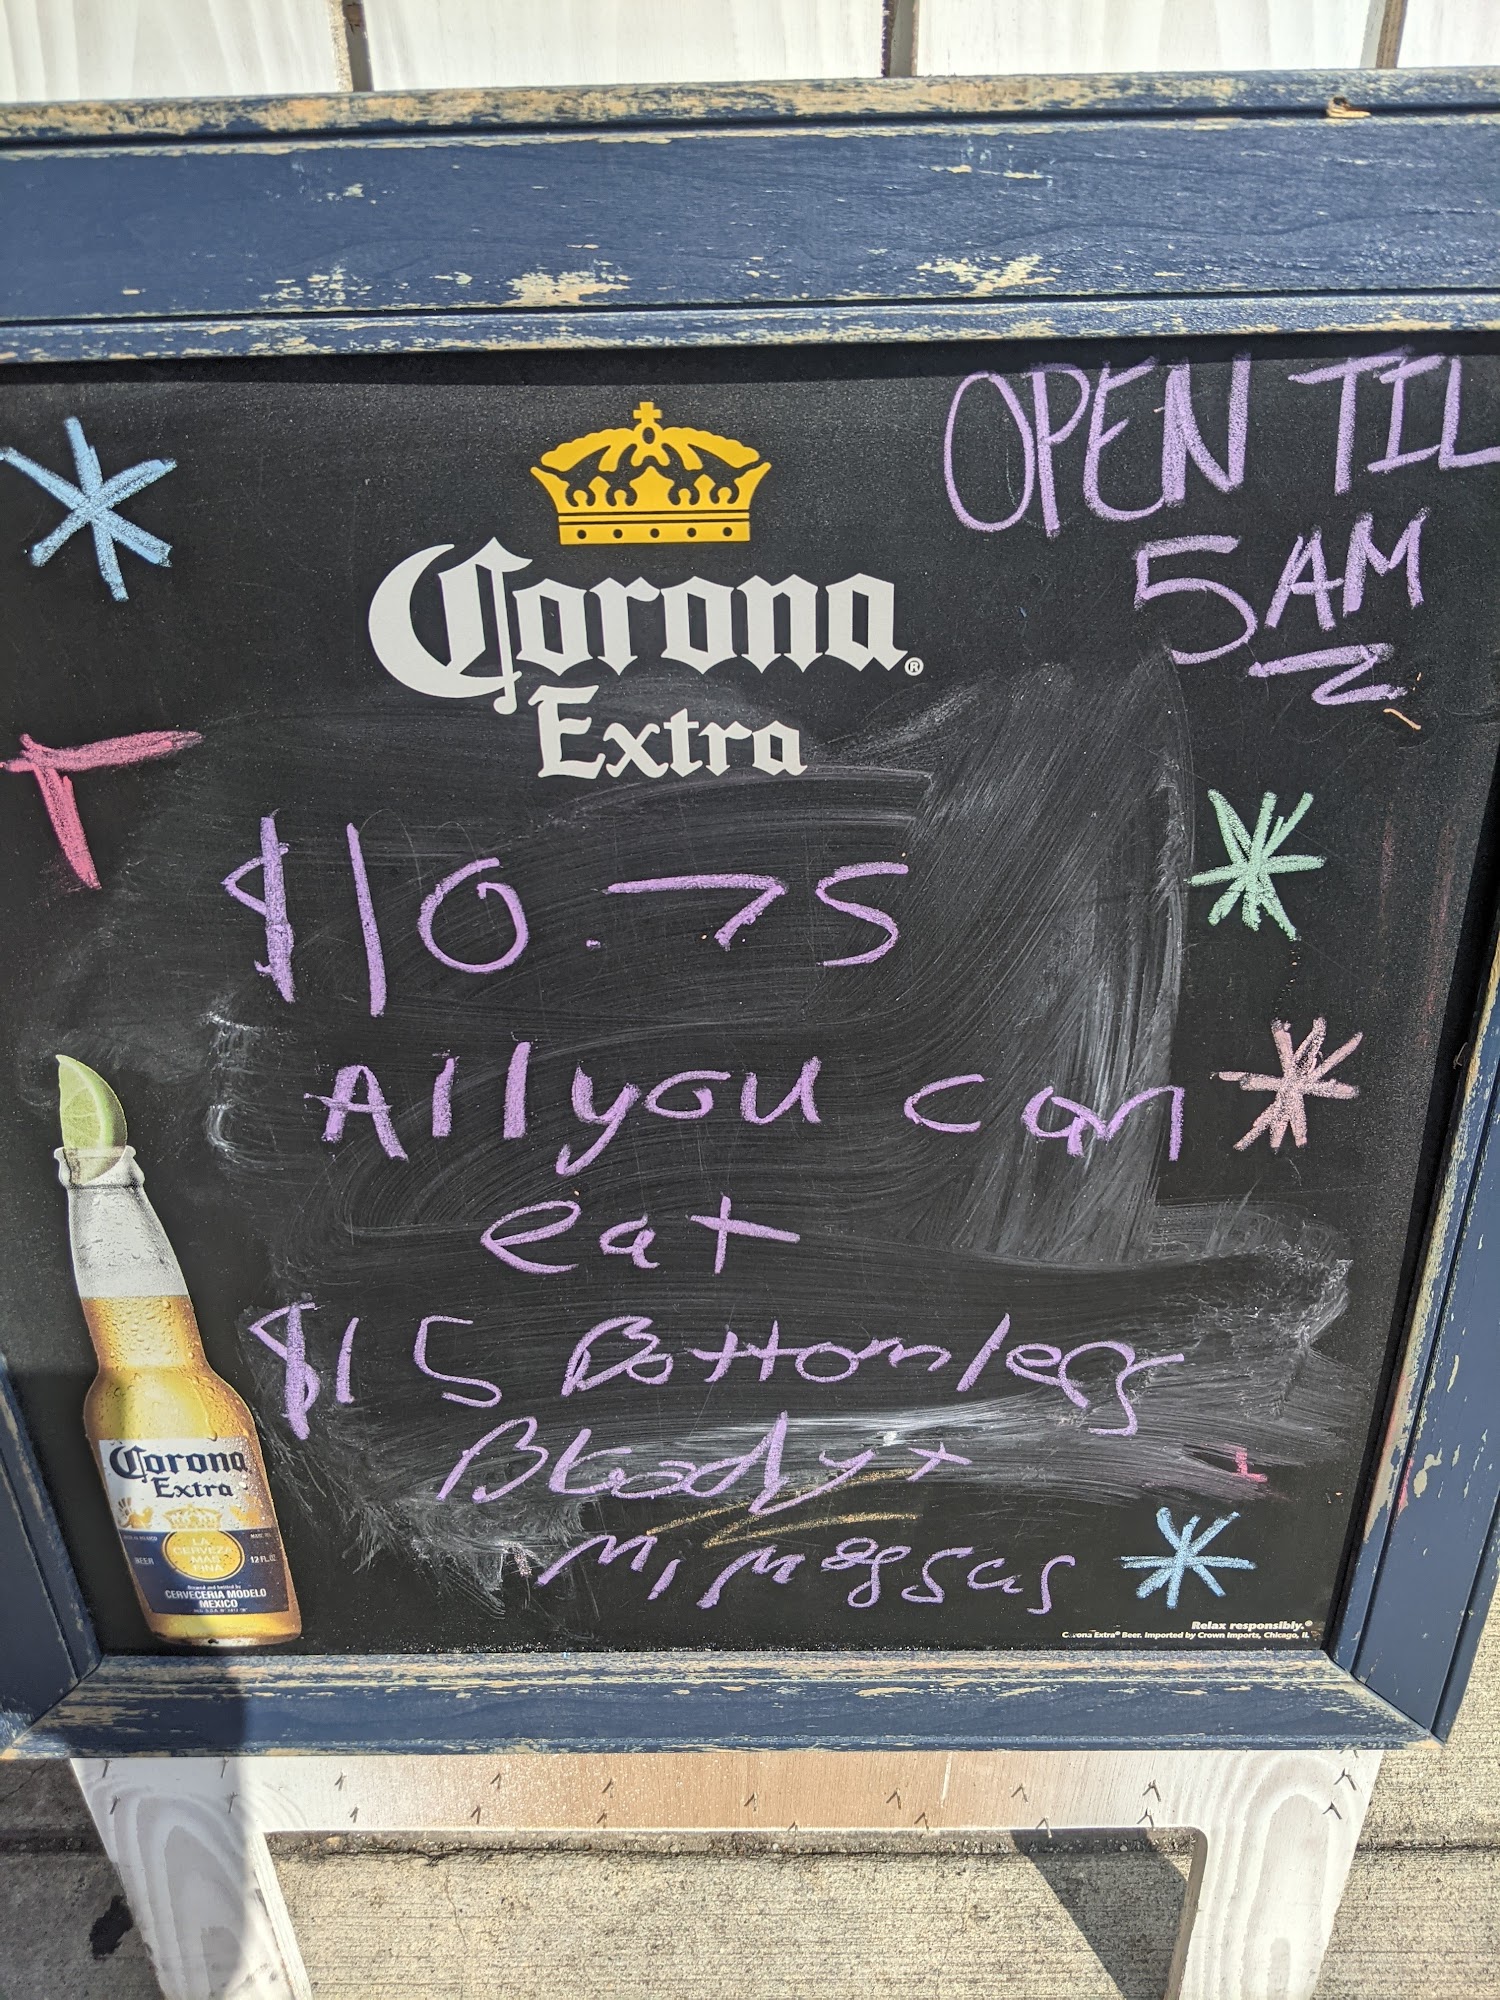 OPEN TIL
5AM
Corona®
Extra
$10.75
All you can
eat
$15 Bottomless
Bloody +
Mimosas
Corona
Extra
BEER
12 FL.OZ
LA
CERVEZA
MAS
FINA
CERVECERIA MODELO
MEXICO
Relax responsibly.®
Corona Extra® Beer. Imported by Crown Imports, Chicago, IL